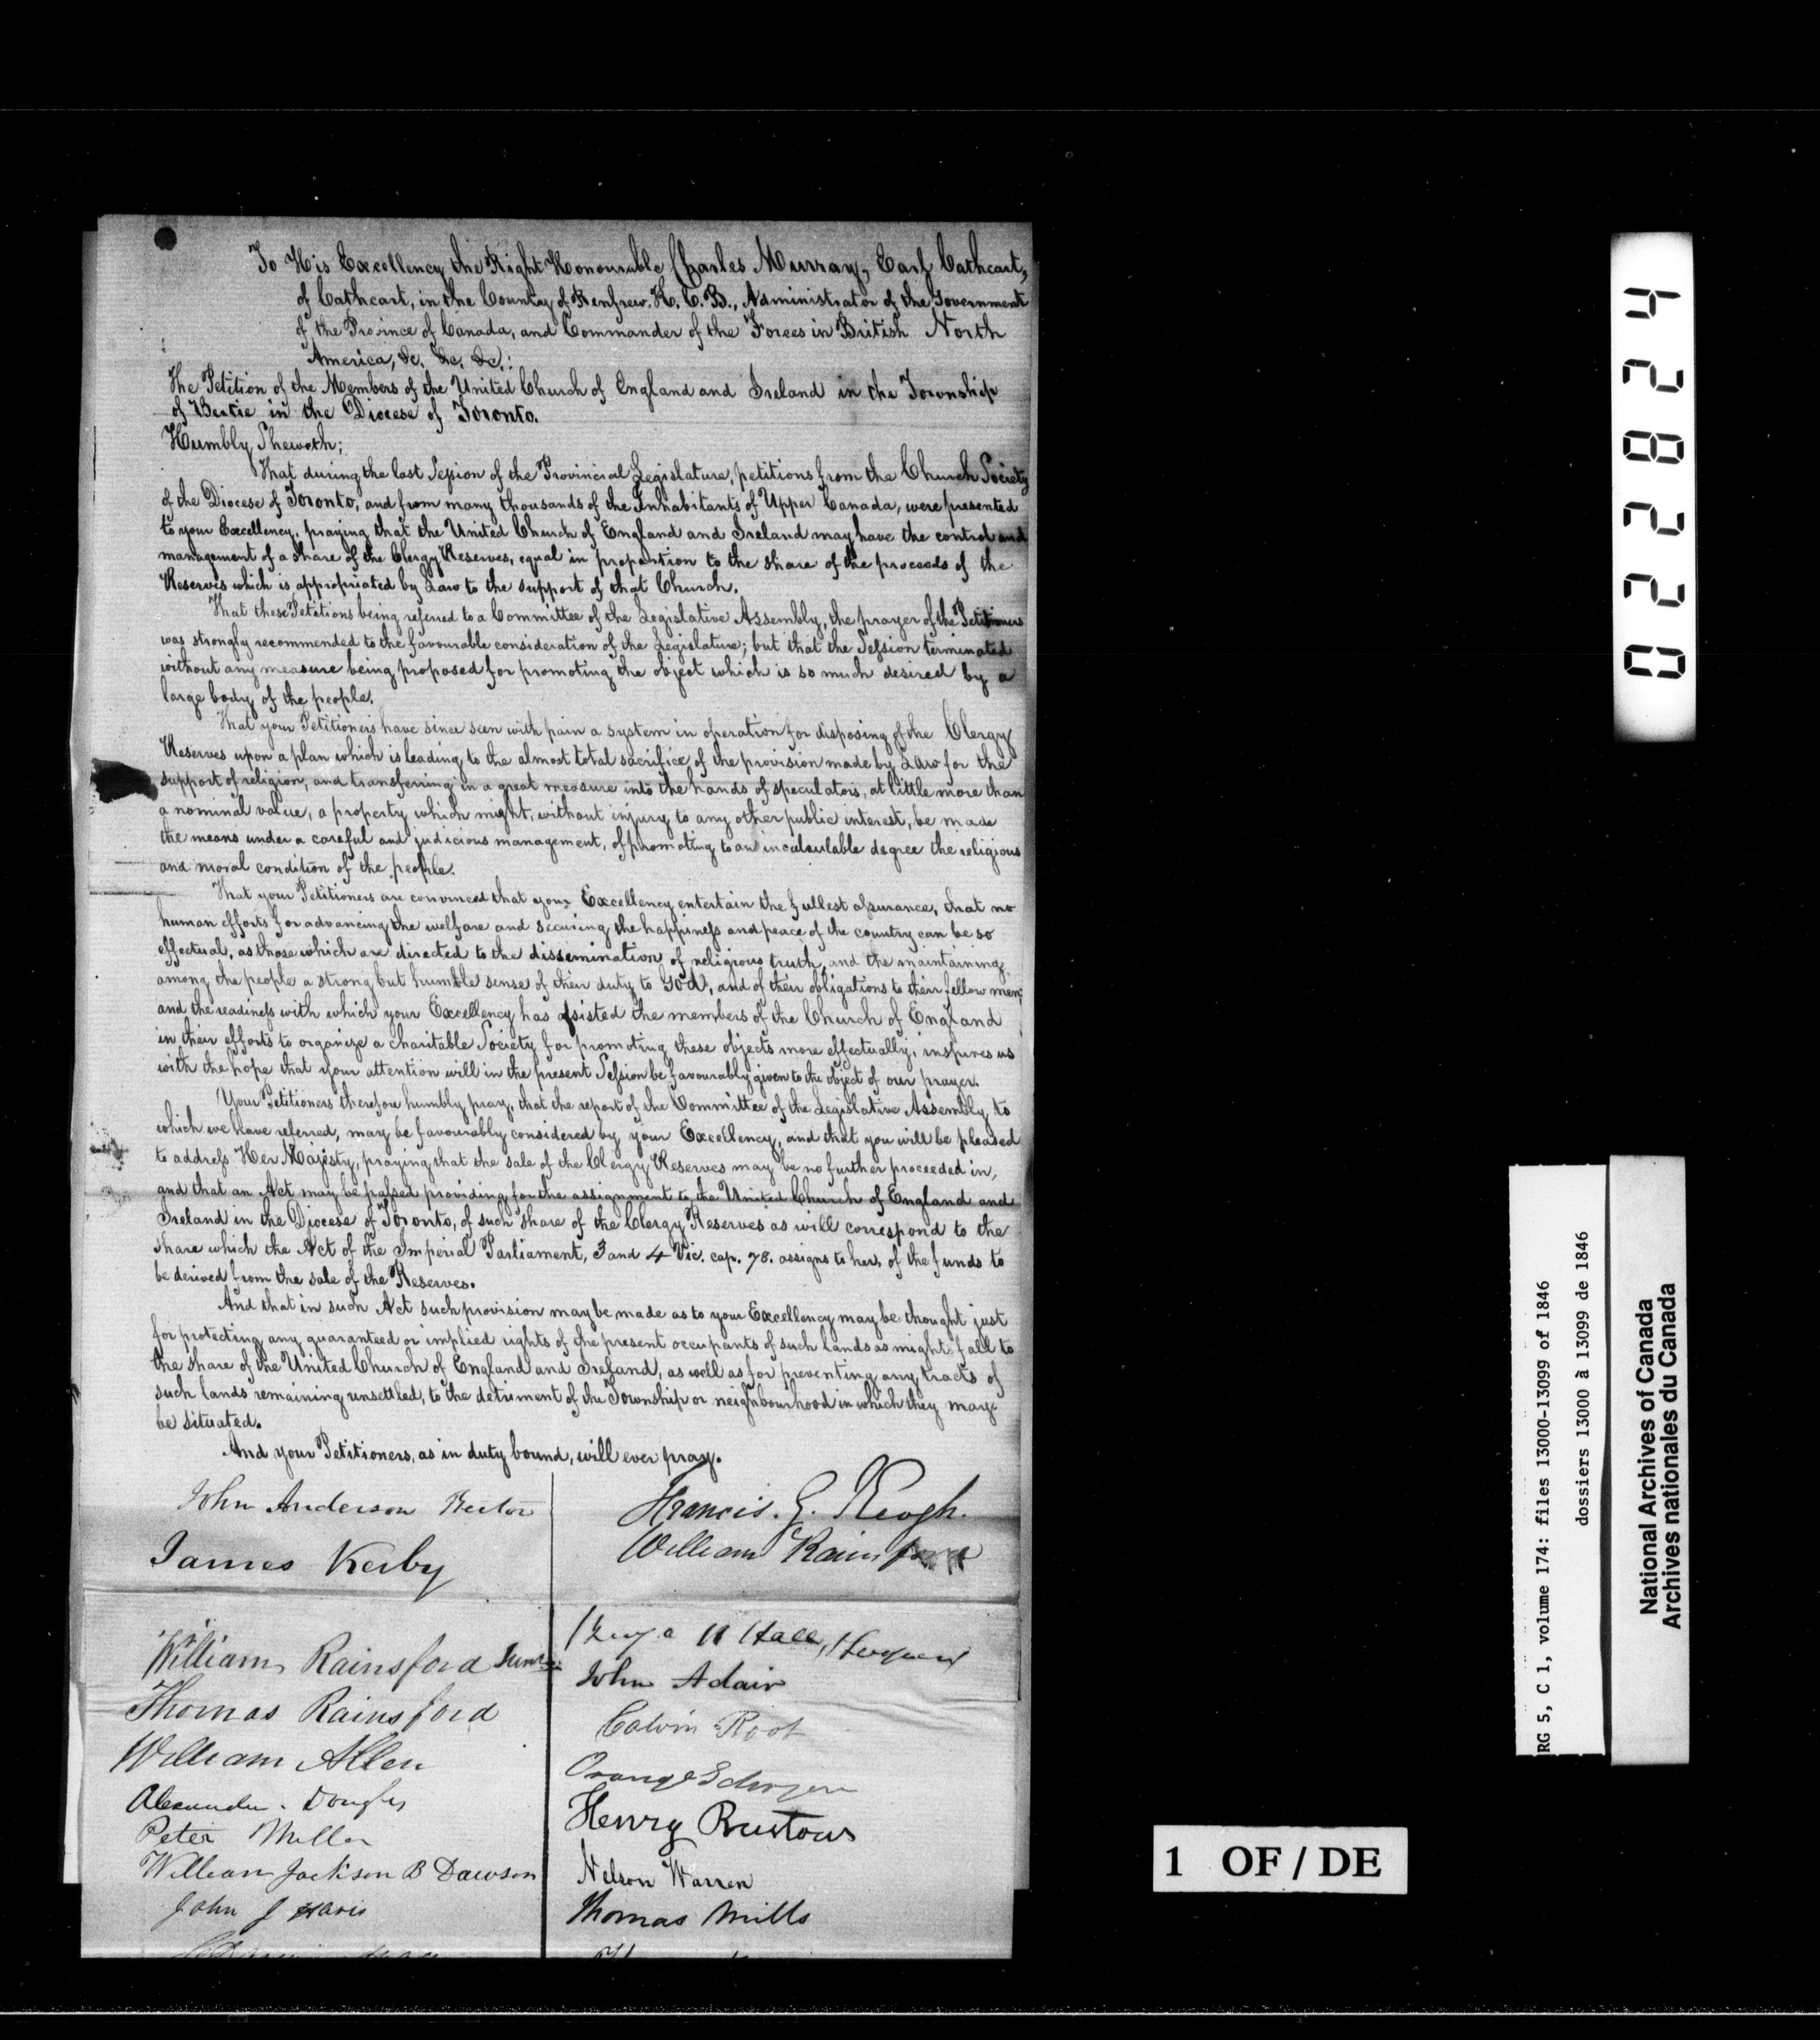 To His Excellency the Right Honourable Charles Murray, Earl Cathcart,
of Cathcart, in the County of Renfrew. K. C. B., Administrator of the Government
of the Province of Canada, and Commander of the Forces in British North
America, &c. &c. &c.:
The Petition of the Members of the United Church of England and Ireland in the Township
of Bertie in the Diocese of Toronto.
Humbly Sheweth;
That during the last Session of the Provincial Legislature, petitions from the Church Society
of the Diocese of Toronto, and from many thousands of the Inhabitants of Upper Canada, were presented
to your Excellency, praying that the United Church of England and Ireland may have the control and
management of a share of the Clergy Reserves, equal in proportion to the share of the proceeds of the
Reserves which is appropriated by Law to the support of that Church.
That these Petitions being referred to a Committee of the Legislative Assembly, the prayer of the Petitioners
was strongly recommended to the favourable consideration of the Legislature; but that the Session terminated
without any measure being proposed for promoting the object which is so much desired by a
large body of the people.
That your Petitioners have since seen with pain a system in operation for disposing of the Clergy
Reserves upon a plan which is leading to the almost total sacrifice of the provision made by Law for the
support of religion, and transferring in a great measure into the hands of speculators, at little more than
a nominal value, a property which might, without injury to any other public interest, be made
the means under a careful and judicious management, of promoting to an incalculable degree the religious
and moral condition of the people.
That your Petitioners are convinced that your Excellency entertain the fullest assurance, that no
human efforts for advancing the welfare and securing the happiness and peace of the country can be so
effectual, as those which are directed to the dissemination of religious truth, and the maintaining
among the people a strong but humble sense of their duty to God, and of their obligations to their fellow men;
and the readiness with which your Excellency has assisted the members of the Church of England
in their efforts to organize a charitable Society for promoting these objects more effectually, inspires us
with the hope that your attention will in the present Session be favourably given to the object of our prayer.
Your Petitioners therefore humbly pray, that the report of the Committee of the Legislative Assembly to
which we have referred, may be favourably considered by your Excellency, and that you will be pleased
to address Her Majesty, praying that the sale of the Clergy Reserves may be no further proceeded in,
and that an Act may be passed providing for the assignment to the United Church of England and
Ireland in the Diocese of Toronto, of such share of the Clergy Reserves as will correspond to the
share which the Act of the Imperial Parliament, 3 and 4 Vic. cap. 78. assigns to hers of the funds to
be derived from the sale of the Reserves.
And that in such Act such provision may be made as to your Excellency may be thought just
for protecting any guaranteed or implied rights of the present occupants of such lands as might fall to
the share of the United Church of England and Ireland, as well as for preventing any tracts of
such lands remaining unsettled, to the detriment of the Township or neighbourhood in which they may
be situated.
And your Petitioners, as in duty bound, will ever pray.
John Anderson Rector
James Kerby
William Rainsford Junr
Thomas Rainsford
William Allen
Alexander Douglas
Peter Miller
William Jackson B Dawson
John J Haris
Francis. G. Keogh.
William Rainsford
Hall,
John Adair
Calvin Root
Orange
Henry
Nelson Warren
Thomas Mills
022824
RG 5, C 1, volume 174: files 13000-13099 of 1846
dossiers 13000 à 13099 de 1846
National Archives of Canada
Archives nationales du Canada
1 OF / DE